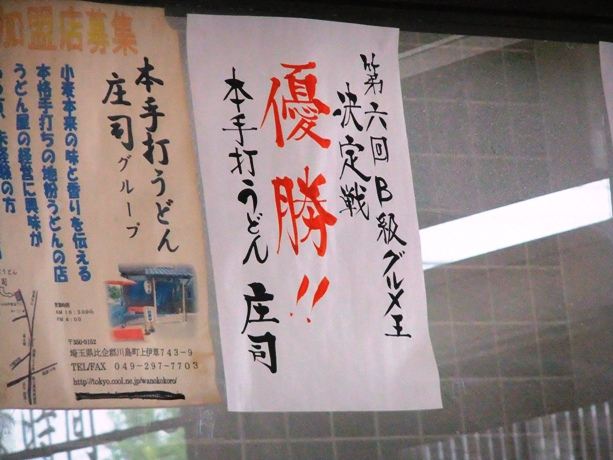 第六回B級グルメ王
決定戦
優勝!!
本手打うどん 庄司
加盟店募集
本手打うどん
庄司グループ
小麦本来の味と香りを伝える
本格手打ちの地粉うどんの店
うどん屋の経営に興味が
〒350-0152
埼玉県比企郡川島町上伊草743-9
TEL/FAX 049-297-7703
http://tokyo.cool.ne.jp/wanokokoro/